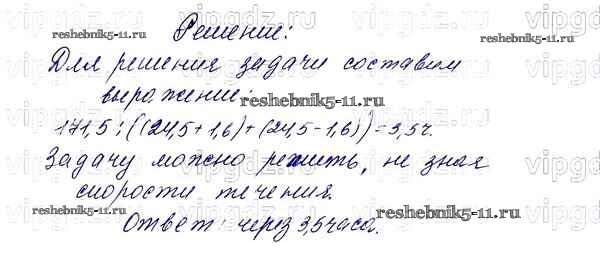 Решение:
reshebnik5-11.ru
Для решения задачи составим
выражение:
reshebnik5-11.ru
171,5 : ((24,5+1,6)+(24,5-1,6))=3,5ч.
Задачу можно решить, не зная
скорости течения.
reshebnik5-11.ru
reshebnik5-11.ru
Ответ: через 3,5 часа.